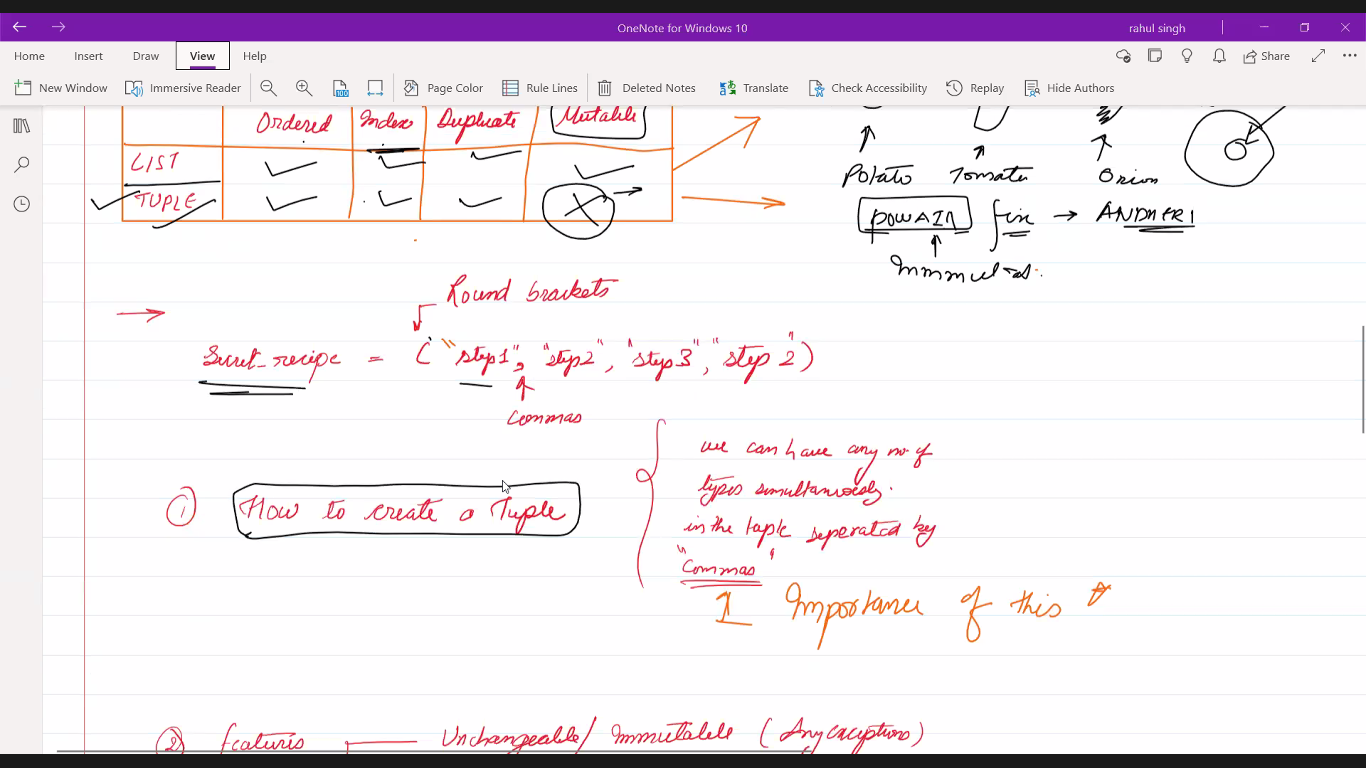 OneNote for Windows 10
rahul singh
Home Insert Draw View Help
Share
New Window Immersive Reader 100 Page Color Rule Lines Deleted Notes Translate Check Accessibility Replay Hide Authors
Ordered Index Duplicate Mutable
LIST
TUPLE
Potato Tomato Onion
POWAII fix → ANDHERI
Round brackets
Secret_recipe = ("step1", "step2", "step3", "step 2")
Commas
we can have any no of
types simultaneously.
in the tuple seperated by
"Commas"
1 Importance of this
① How to create a Tuple
② features Unchangeable/ Immutable (Any exceptions)